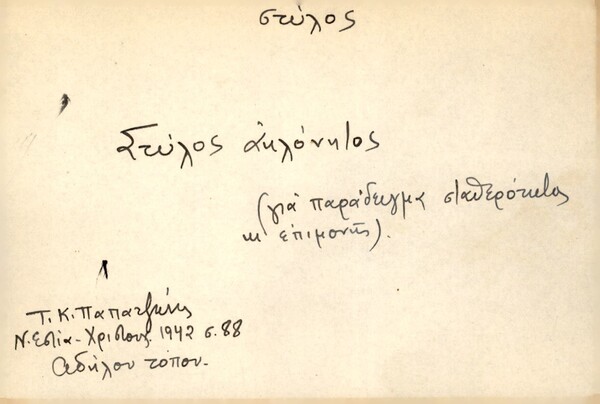 στύλος
Στύλος ἀκλόνητος
(γιά παράδειγμα σταθερότητας
κι ἐπιμονῆς).
Τ. Κ. Παπατζώνης
Ν. Εστία - Χριστουγ. 1942 σ. 88
Αδήλου τόπου.